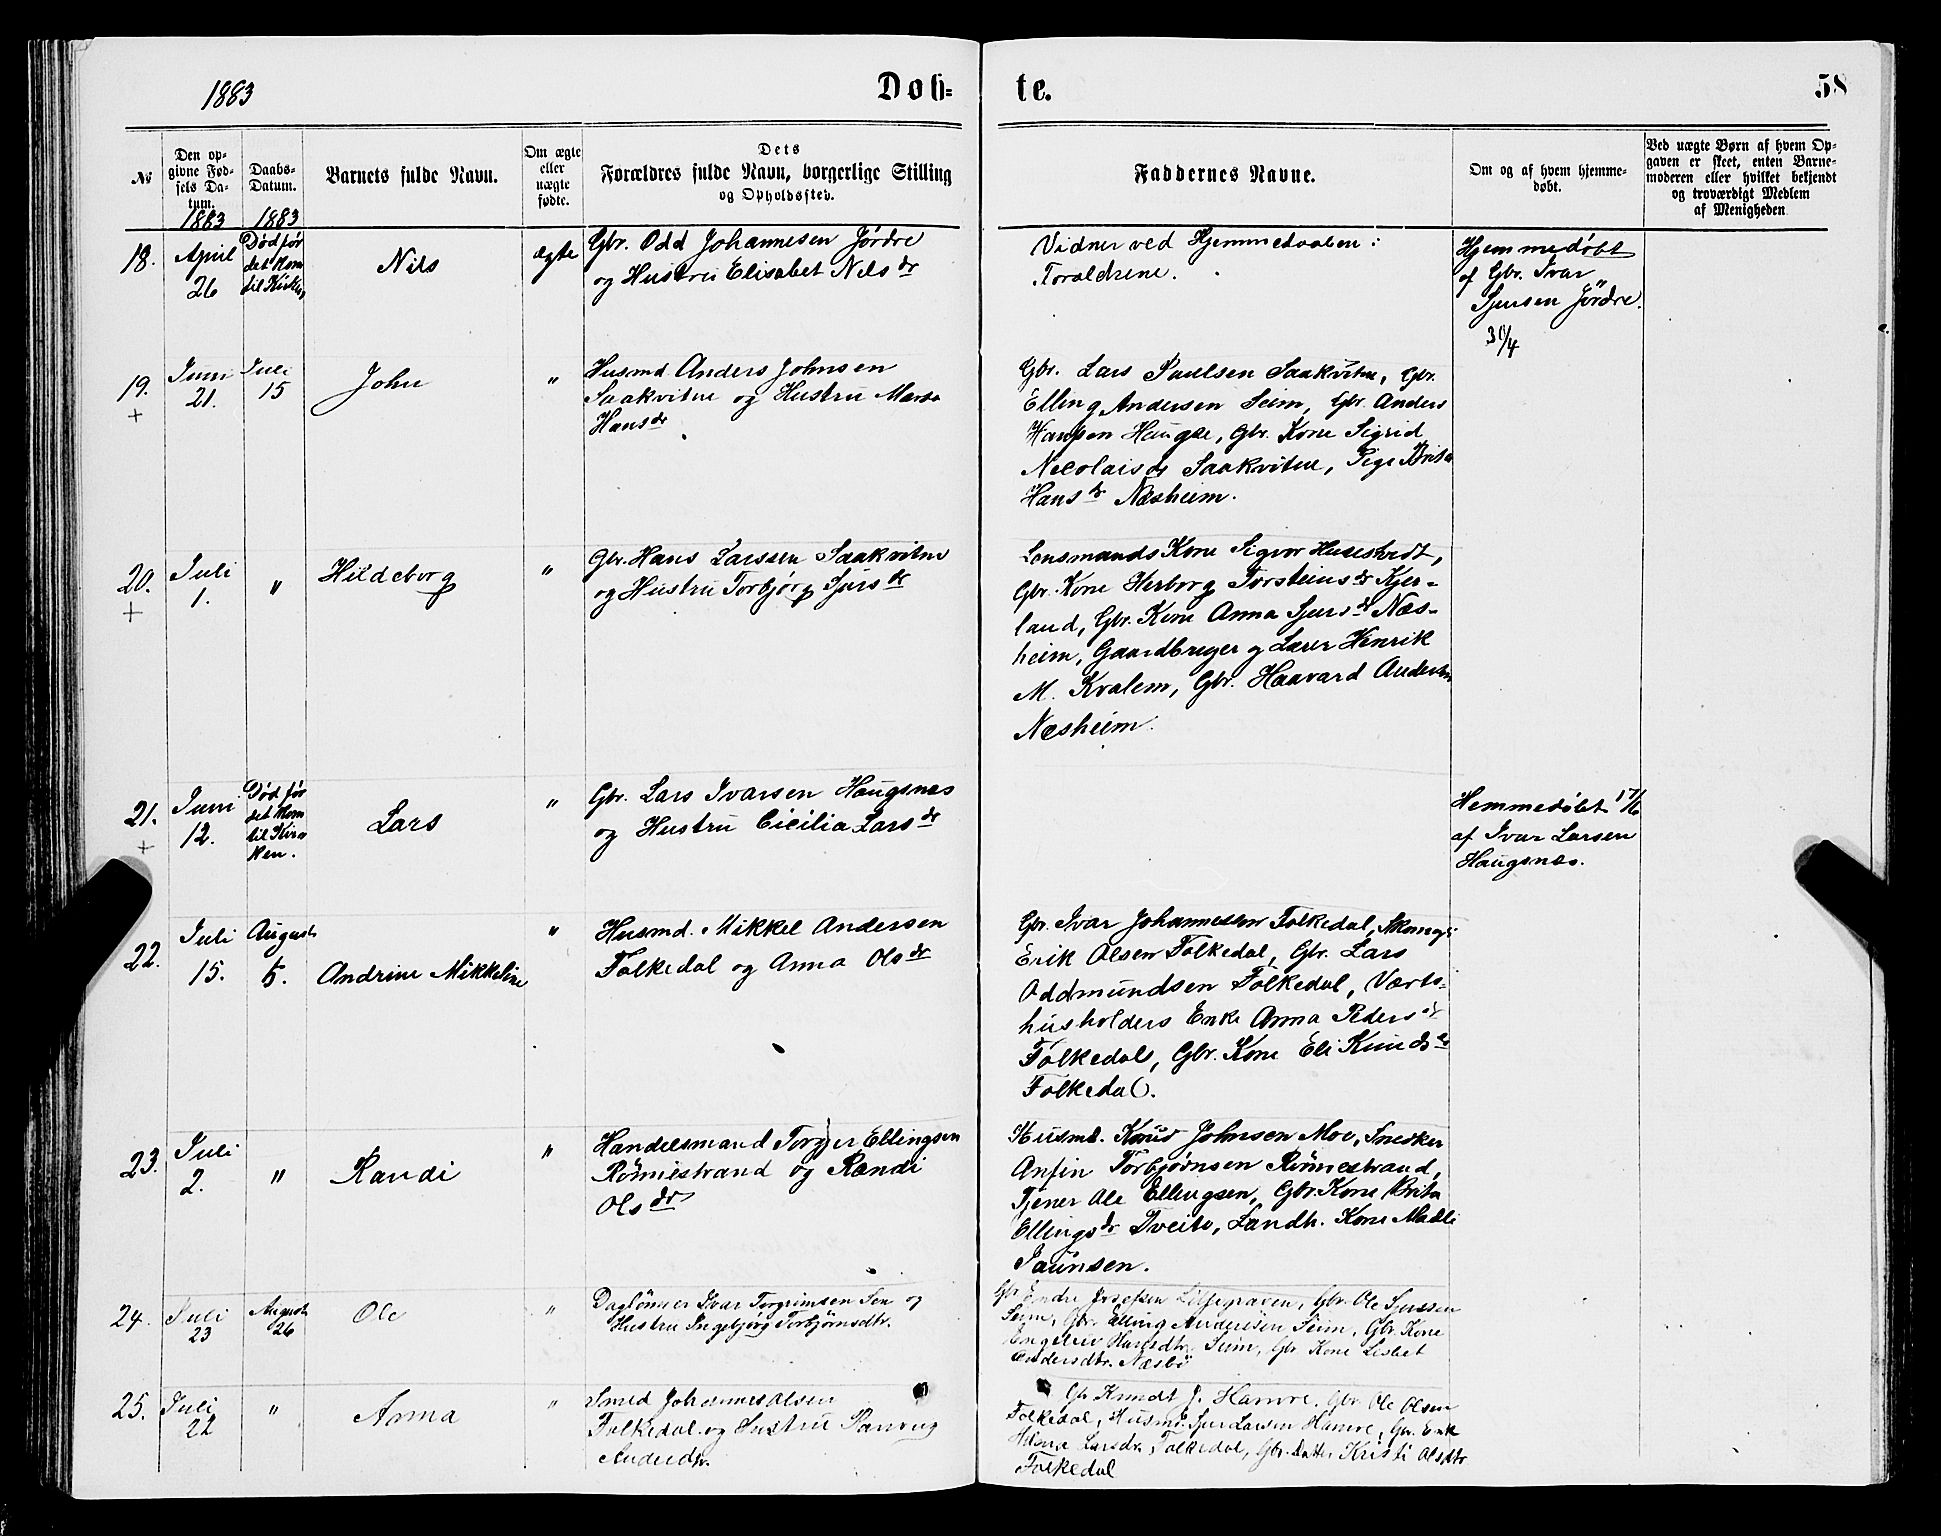 1883
Døb-
te.
58
No
Den op-
givne Fød-
sels Da-
tum.
1883
Daabs-
Datum.
1883
Barnets fulde Navn.
Om ægte
eller
uægte
fødte.
Dets
Forældres fulde Navn, borgerlige Stilling
og Opholdssted.
Faddernes Navne.
Om og af hvem hjemme-
døbt.
Ved uægte Børn af hvem Op-
gaven er skeet, enten Barne-
moderen eller hvilket bekjendt
og troværdigt Medlem
af Menigheden
18.
April
26
Død før
det kom
til Kirken
Nils
ægte
Gbr. Odd Johannesen Jørdre
og Hustru Elisabet Nilsdr
Vidner ved Hjemmedaaben:
Forældrene.
Hjemmedøbt
af Gbr. Ivar
Sjursen Jørdre.
30/4
19.
+
Juni
21.
Juli
15
John
"
Husmd. Anders Johnsen
Saakvitne og Hustru Marta
Hansdr
Gbr. Lars Paulsen Saakvitne, Gbr.
Elling Andersen Seim, Gbr. Anders
Hansen Haugse, Gbr. Kone Sigrid
Nicolaisdr Saakvitne, Pige Brita
Hansdr Næsheim.
20.
+
Juli
1.
"
Hildeborg
"
Gbr. Hans Larssen Saakvitne
og Hustru Torbjørg Sjursdr
Lensmands Kone Sigvor
Gbr. Kone Herborg Torsteinsdr Kjer-
land, Gbr. Kone Anna Sjursdr Næs-
heim, Gaardbruger og Lærer Henrik
M. Kvalem, Gbr. Haavard Andersen
Næsheim.
21.
+
Juni
12.
Død før
det kom
til Kir-
ken.
Lars
"
Gbr. Lars Ivarsen Haugsnæs
og Hustru Cicilia Larsdr
Hemmedøbt 17/6
af Ivar Larsen
Haugsnæs.
22.
Juli
15.
August
5.
Andrine Mikkeline
"
Husmd. Mikkel Andersen
Folkedal og Anna Olsdr
Gbr. Ivar Johannessen Folkedal,
Erik Olsen Folkedal, Gbr. Lars
Oddmundsen Folkedal, Værts-
husholders Enke Anna Pedersdr
Folkedal, Gbr. Kone Eli Knudsdr
Folkedal.
23.
Juli
2.
"
Randi
"
Handelsmand Torgjer Ellingsen
Rønnestrand og Randi
Olsdr
Husmd. Knud Johnsen Moe, Snedker
Anfin Torbjørnsen Rønnestrand,
Tjener Ole Ellingsen, Gbr. Kone Brita
Ellingsdr Tveito, Landh. Kone Madli
Jaunsen.
24.
Juli
23
August
26
Ole
"
Daglønner Ivar Torgrimsen og
Hustru Ingebjørg Torbjørnsdtr.
Gbr Endre Josefsen Lillegraven, Gbr. Ole Sjurssen
Seim, Gbr. Elling Andersen Seim, Gbr. Kone
Hansdtr. Seim, Gbr Kone Lisbet
Andersdtr. Næsbø
25.
Juli
22
"
Anna
"
Smed Johannes Olsen
Folkedal og Hustru Ranveig
Andersdtr.
Gbr Knudt J. Hamre, Gbr. Ole Olsen
Folkedal, Husmd. Sjur Larsen Hamre, Gbr. Enk
Larsdr. Folkedal, Gbr. Datter Kristi Olsdtr
Folkedal